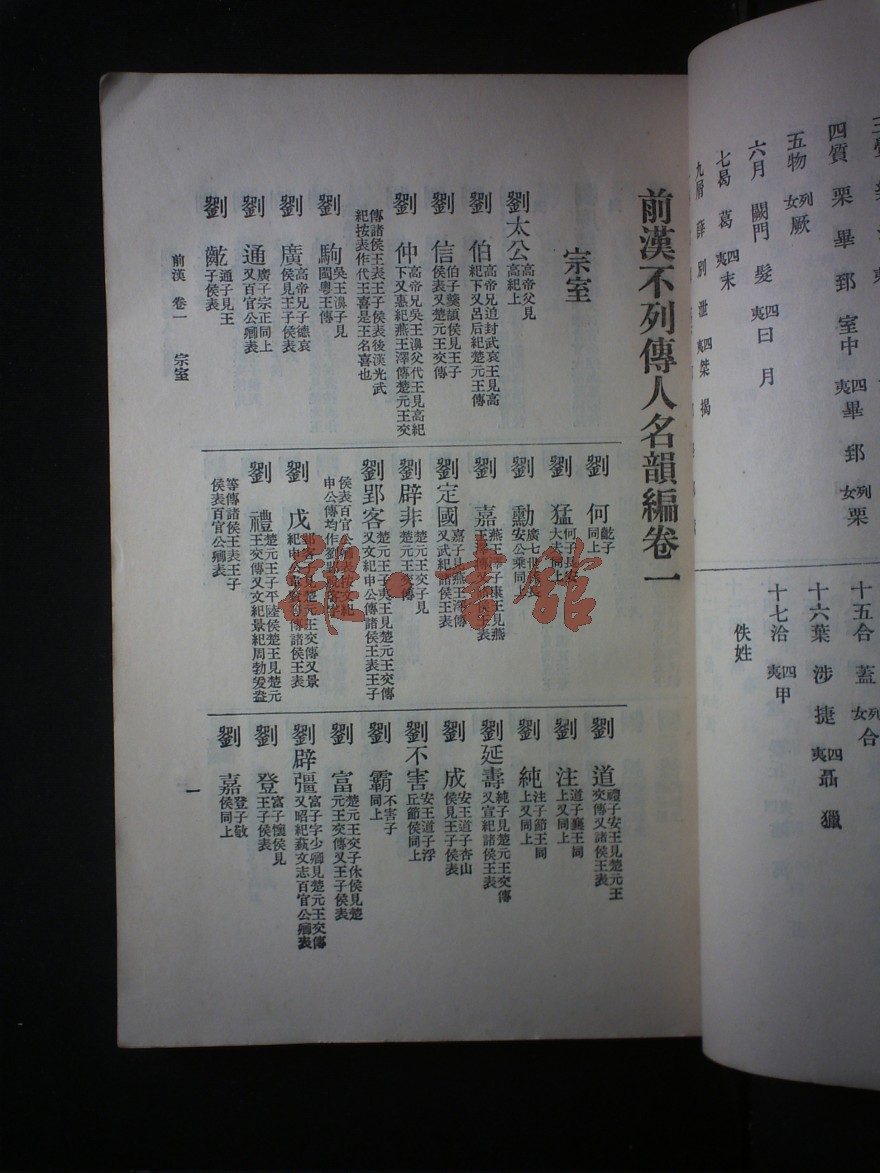 四質 栗 畢 郅 室中 四夷畢 郅 列女栗
五物 列女厥
六月 闕門 髮 四夷曰 月
七曷 葛 四夷末
九屑 薛 別 泄 四夷桀 揭
十五合 蓋 列女合
十六葉 涉 捷 四夷聶 獵
十七洽 四夷甲
佚姓
前漢不列傳人名韻編卷一
宗室
劉太公 高帝父見高紀上
劉伯 高帝兄追封武哀王見高紀下又呂后紀楚元王傳
劉信 伯子羹頡侯見王子侯表又楚元王傳
劉仲 高帝兄吳王濞父代王見高紀下又惠紀燕王澤傳楚元王交
傳諸侯王表王子侯表後漢光武紀按表作代王喜是王名喜也
劉駒 吳王濞子見閩粵王傳
劉廣 高帝兄子德哀侯見王子侯表
劉通 廣子宗正同上又百官公卿表
劉齕 通子見王子侯表
劉何 齕子同上
劉猛 何子長安大夫同上
劉勳 廣七世孫長安公乘同上
劉嘉 燕王澤子康王見燕王澤傳又諸侯王表
劉定國 嘉子見燕王澤傳又武紀諸侯王表
劉辟非 楚元王交子見楚元王交傳
劉郢客 楚元王交子夷王見楚元王交傳又文紀申公傳諸侯王表王子
侯表百官公卿表按文紀申公傳均作劉郢無客字
劉戊 郢客子見楚元王交傳又景紀申公傳諸侯王表
劉禮 楚元王交子平陸侯楚王見楚元王交傳又文紀景紀周勃爰盎
等傳諸侯王表王子侯表百官公卿表
劉道 禮子安王見楚元王交傳又諸侯王表
劉注 道子襄王同上又同上
劉純 注子節王同上又同上
劉延壽 純子見楚元王交傳又宣紀諸侯王表
劉成 安王道子杏山侯見王子侯表
劉不害 安王道子浮丘節侯同上
劉霸 不害子同上
劉富 楚元王交子休侯見楚元王交傳又王子侯表
劉辟彊 富子字少卿見楚元王交傳又昭紀蓺文志百官公卿表
劉登 富子懷侯見王子侯表
劉嘉 登子敬侯同上
前漢 卷一 宗室
一